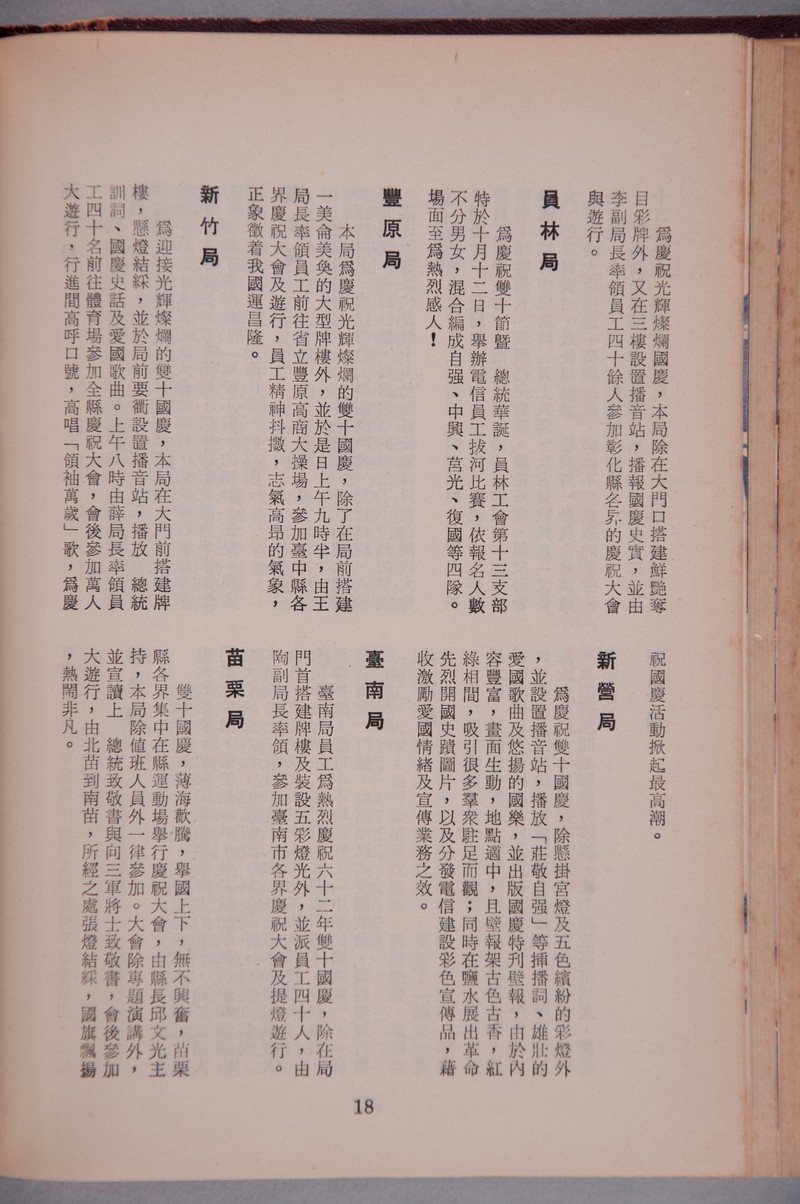 爲慶祝光輝燦爛國慶，本局除在大門口搭建鮮艷奪
目彩牌外，又在三樓設置播音站，播報國慶史實，並由
李副局長率領員工四十餘人參加彰化縣各界的慶祝大會
與遊行。
員林局
爲慶祝雙十節暨　總統華誕，員林工會第十三支部
特於十月十二日，舉辦電信員工拔河比賽，依報名人數
不分男女，混合編成自强、中興、莒光、復國等四隊。
場面至爲熱烈感人！
豐原局
本局爲慶祝光輝燦爛的雙十國慶，除了在局前搭建
一美侖美奐的大型牌樓外，並於是日上午九時半，由王
局長率領員工前往省立豐原高商大操場，參加臺中縣各
界慶祝大會及遊行，員工精神抖擻，志氣高昂的氣象，
正象徵着我國運昌隆。
新竹局
爲迎接光輝燦爛的雙十國慶，本局在大門前搭建牌
樓，懸燈結綵，並於局前要衢設置播音站，播放　總統
訓詞、國慶史話及愛國歌曲。上午八時由薛局長率領員
工四十名前往體育場參加全縣慶祝大會，會後參加萬人
大遊行，行進間高呼口號，高唱「領袖萬歲」歌，爲慶
祝國慶活動掀起最高潮。
新營局
爲慶祝雙十國慶，除懸掛宮燈及五色繽紛的彩燈外
，並設置播音站，播放「莊敬自强」等揷播詞、雄壯的
愛國歌曲及悠揚的國樂，並出版國慶特刊壁報，由於內
容豐富，畫面生動，地點適中，且壁報架古色古香，紅
綠相間，吸引很多羣衆駐足而觀；同時在鹽水展出革命
先烈開國史蹟圖片，以及分發電信建設彩色宣傳品，藉
收激勵愛國情緒及宣傳業務之效。
臺南局
臺南局員工爲熱烈慶祝六十二年雙十國慶，除在局
門首搭建牌樓及裝設五彩燈光外，並派員工四十人，由
陶副局長率領，參加臺南市各界慶祝大會及提燈遊行。
苗栗局
雙十國慶，薄海歡騰，舉國上下，無不興奮，苗栗
縣各界集中在縣運動場舉行慶祝大會，由縣長邱文光主
持，本局除値班人員外一律參加。大會除專題演講外，
並宣讀上　總統致敬書與向三軍將士致敬書，會後參加
大遊行，由北苗到南苗，所經之處張燈結綵，國旗飄揚
，熱鬧非凡。
18